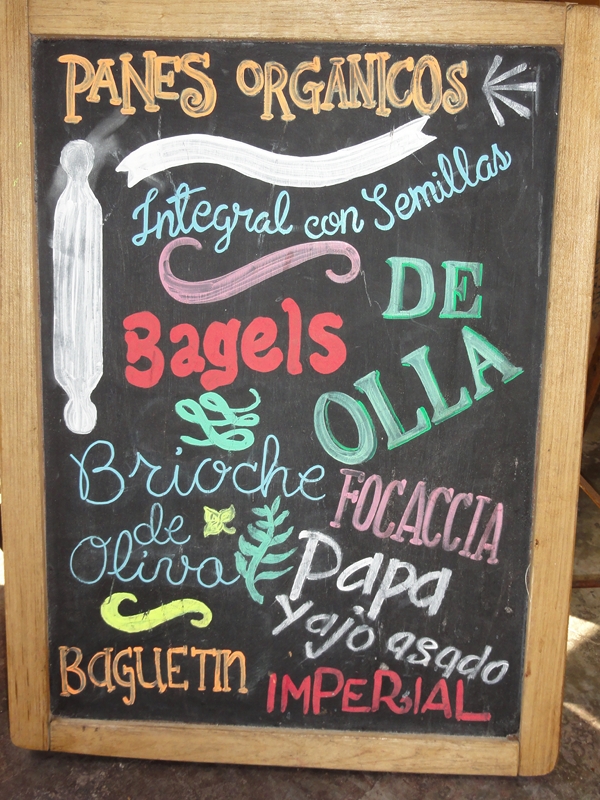 PANES ORGÁNICOS
Integral con Semillas
DE
OLLA
Bagels
Brioche
de
Oliva
FOCACCIA
Papa
y ajo asado
BAGUETIN
IMPERIAL